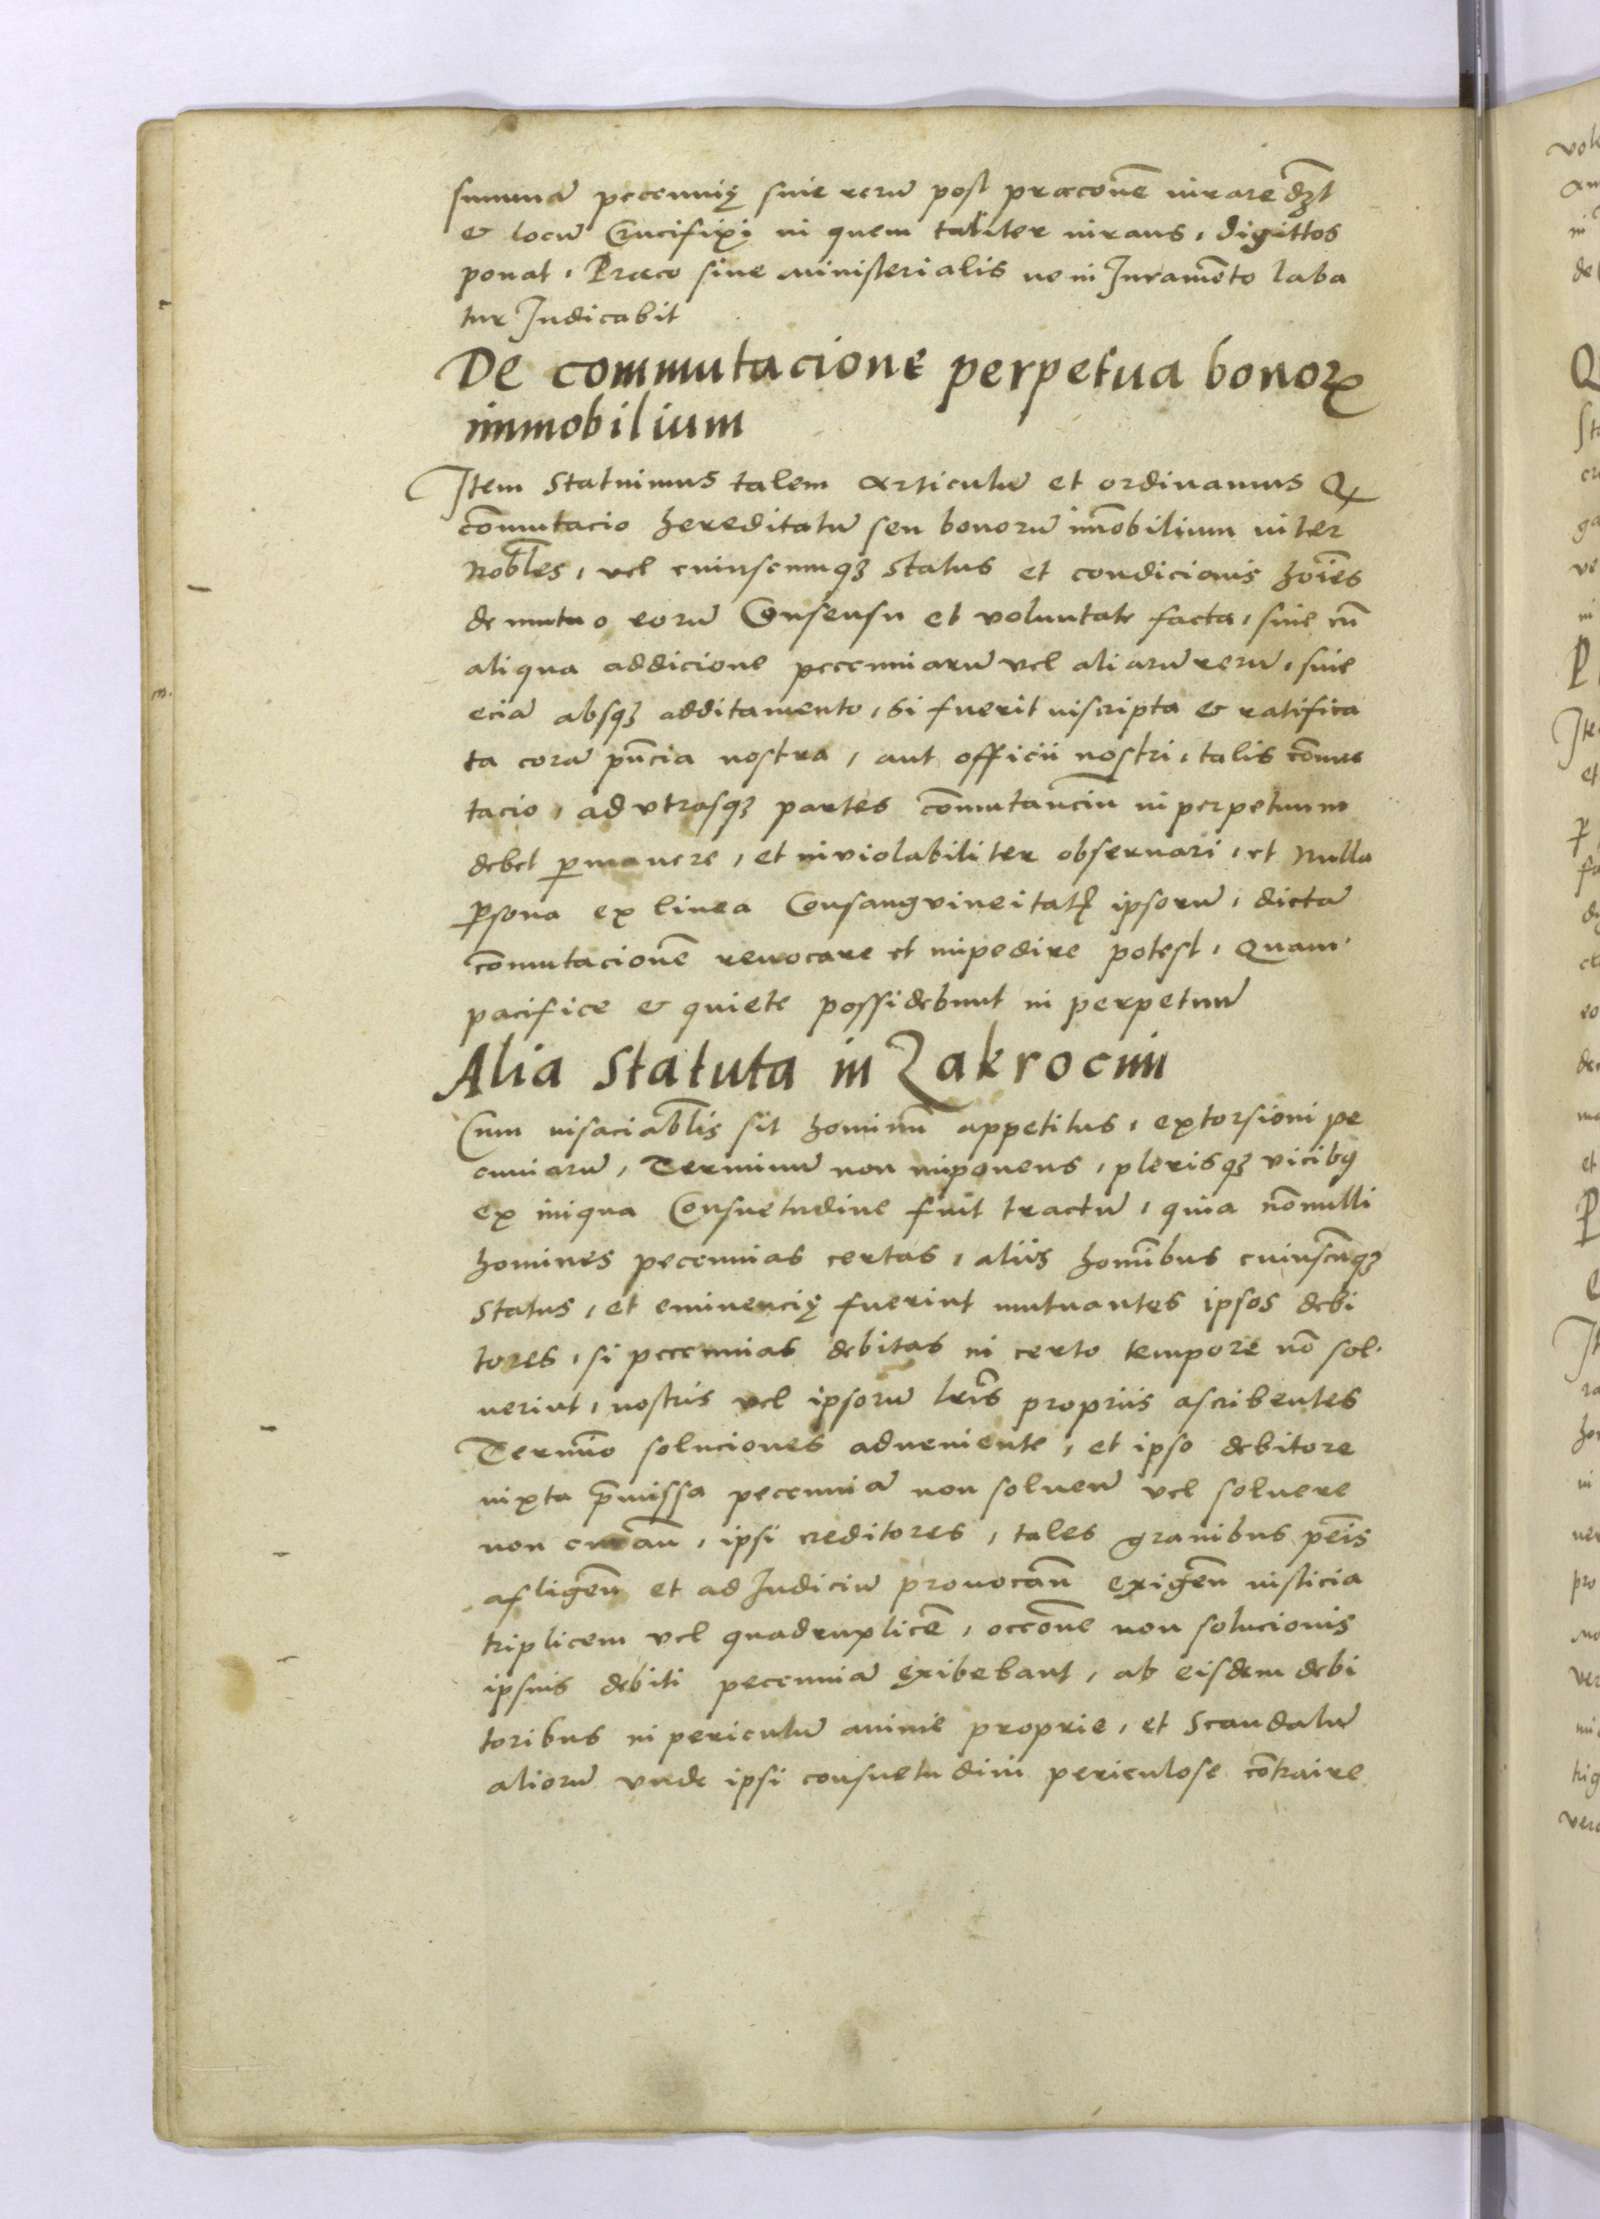 summā pecunię siue rerū post præconē iurare dꝫt
& locū Crucifixi in quem taliter iurans, digittos
ponat, Præco siue ministerialis ne in Juramēto laba
tur Judicabit
De commutacione perpetua bonoꝝ
immobilium
Jtem statuimus talem articulū et ordinamus Qꝫ
cōmutacio hereditatū seu bonorū imōbilium inter
Nobles, vel cuiuscunqꝫ status et condicionis hoīes
de mutuo eorū Consensu et voluntate facta, siue cū
aliqua addicione pecuniarū vel aliarū rerū, siue
eciā absqꝫ additamento, si fuerit inscripta & ratifica
ta corā pn̄cia nostra, aut officii nostri, talis cōmu
tacio, ad vtrasqꝫ partes cōmutanciū in perpetuum
debet ꝑmanere, et inviolabiliter obseruari, et Nulla
ꝑsona ex linea Consangvineitatꝭ ipsorū, dictā
cōmutacionē reuocare et impedire potest, Quam
pacifice & quiete possidebunt in perpetuū
Alia statuta in Zakrocim
Cum insaciablis sit hominū appetitus, extorsioni pe
cuniarū, Terminū non imponens, plerisqꝫ vicibꝰ
ex iniqua Consuetudine fuit tractū, quia nōnulli
homines pecunias certas, aliis homībus cuiuscūqꝫ
status, et eminencię fuerint mutuantes ipsos debi
tores, si pecunias debitas in certo tempore nō sol
uerint, nostris vel ipsorū lr̄is propriis ascribentes
Termīo soluciones adueniente, et ipso debitore
iuxta p̄missa pecuniā non soluen̄ vel soluere
non curan̄, ipsi creditores, tales grauibus pēis
afligen̄ et ad Judiciū prouocan̄ exigen̄ iusticia
triplicem vel quadruplicē, occōne non solucionis
ipsius debiti pecuniā exibebant, ab eisdem debi
toribus in periculū anime proprie, et scandalū
aliorū vnde ipsi consuetudini periculose cōtraire